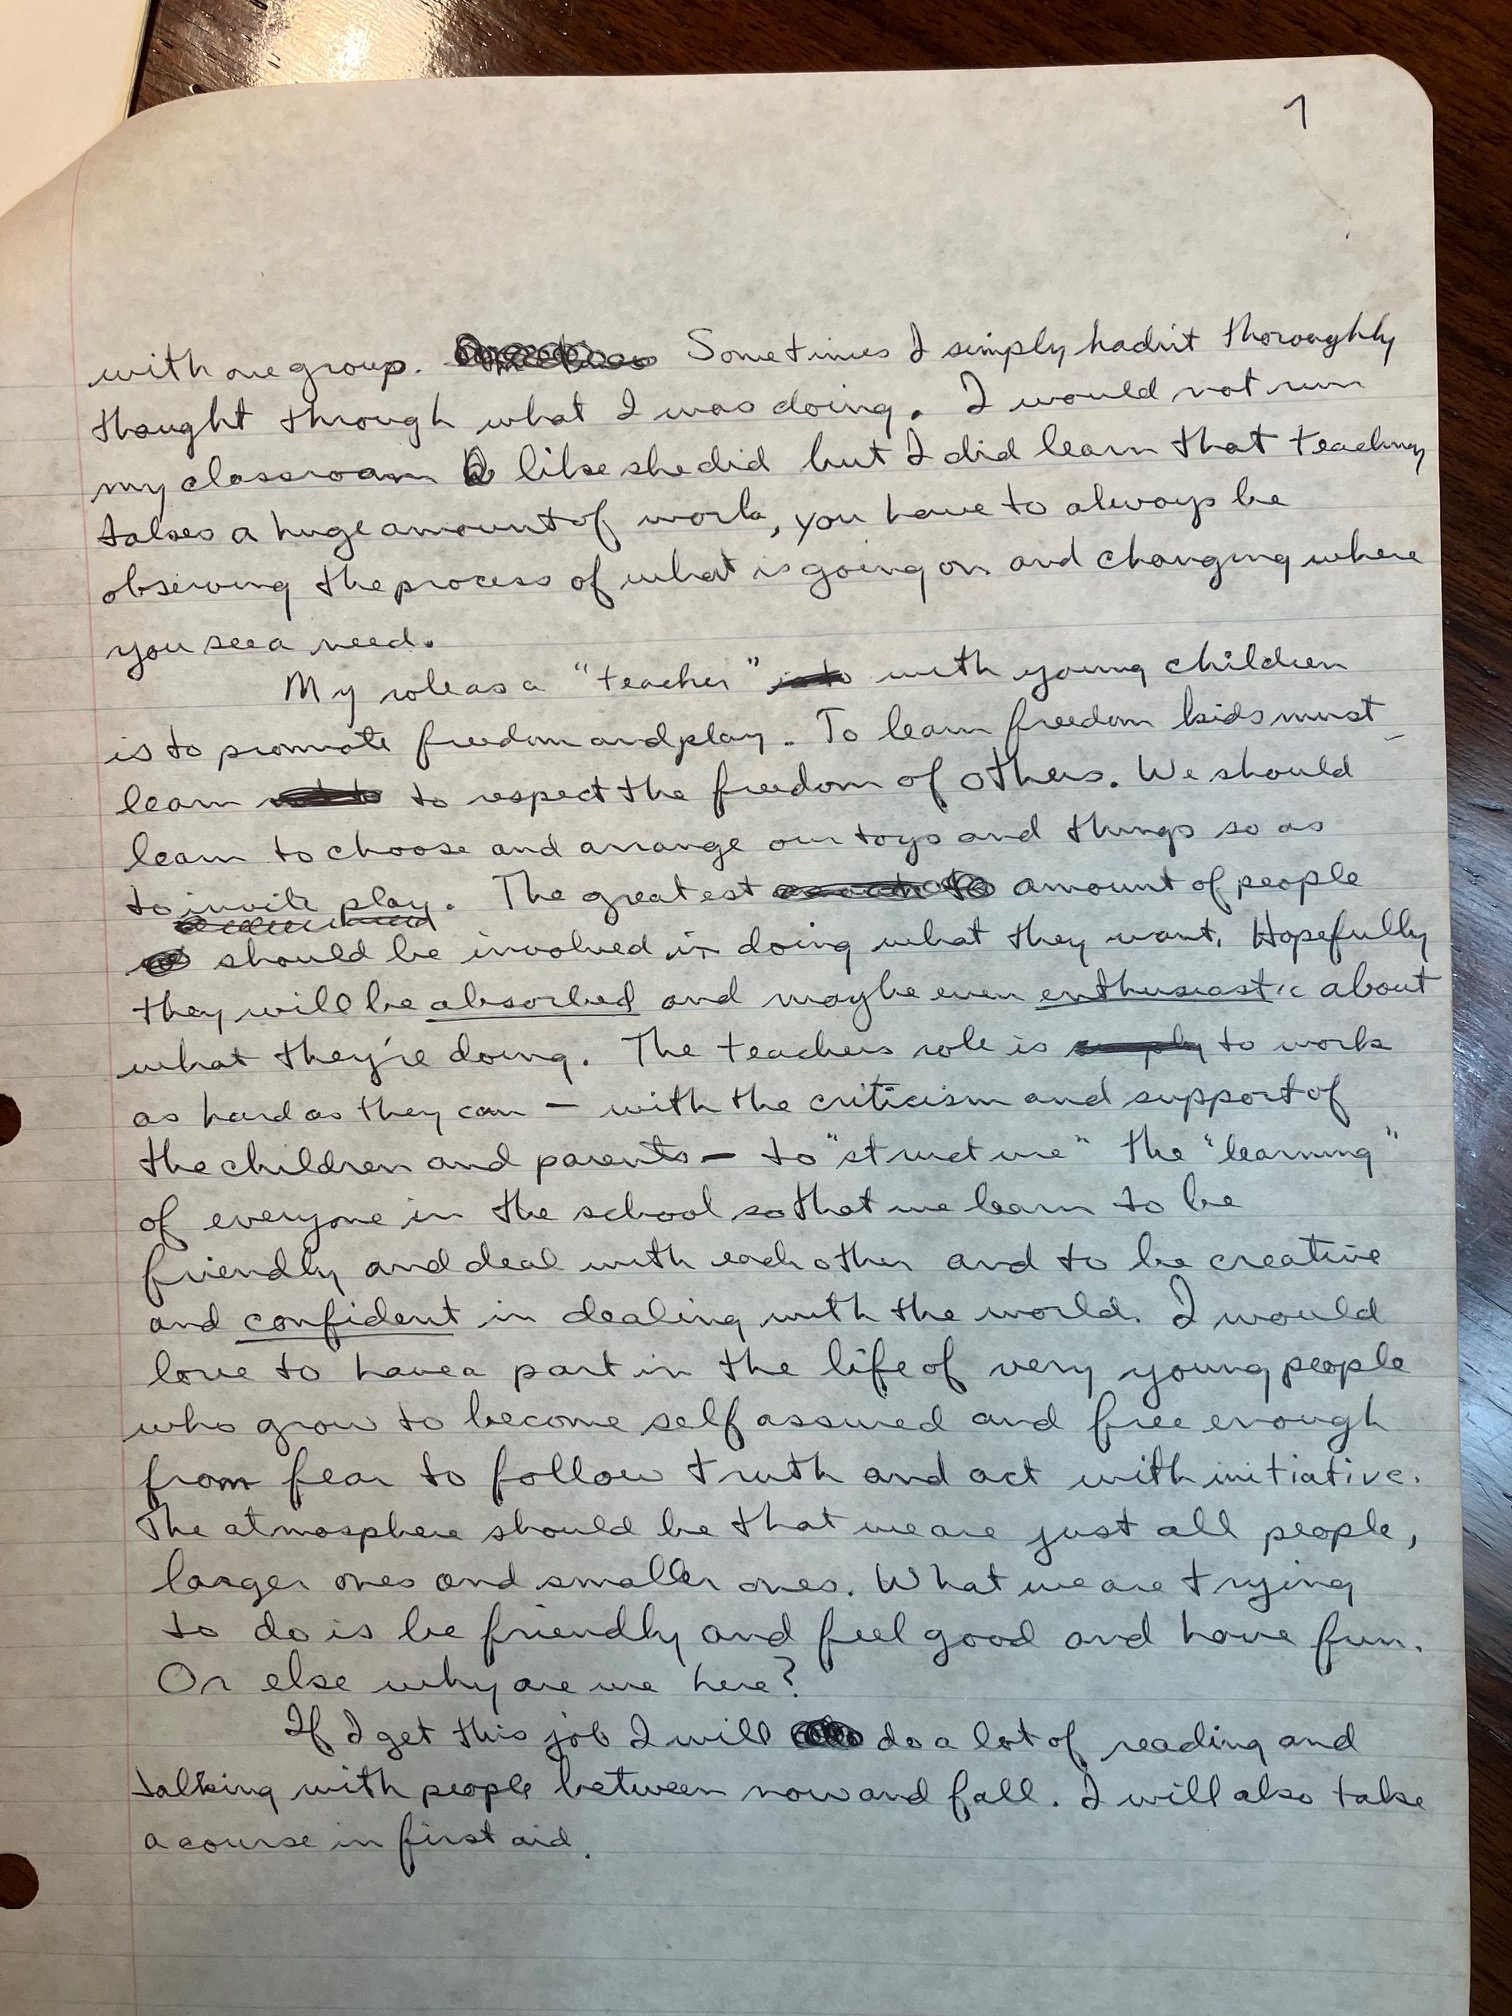 7
with one group. Sometimes I simply hadn't thoroughly
thought through what I was doing. I would not run
my classroom like she did but I did learn that teaching
takes a huge amount of work, you have to always be
observing the process of what is going on and changing where
you see a need.
My role as a "teacher" with young children
is to promote freedom and play. To learn freedom kids must
learn to respect the freedom of others. We should
learn to choose and arrange our toys and things so as
to invite play. The greatest amount of people
should be involved in doing what they want. Hopefully
they will be absorbed and maybe even enthusiastic about
what they're doing. The teachers role is simply to work
as hard as they can - with the criticism and support of
the children and parents - to "structure" the "learning"
of everyone in the school so that we learn to be
friendly and deal with each other and to be creative
and confident in dealing with the world. I would
love to have a part in the life of very young people
who grow to become self assured and free enough
from fear to follow truth and act with initiative.
The atmosphere should be that we are just all people,
larger ones and smaller ones. What we are trying
to do is be friendly and feel good and have fun.
Or else why are we here?
If I get this job I will do a lot of reading and
talking with people between now and fall. I will also take
a course in first aid.